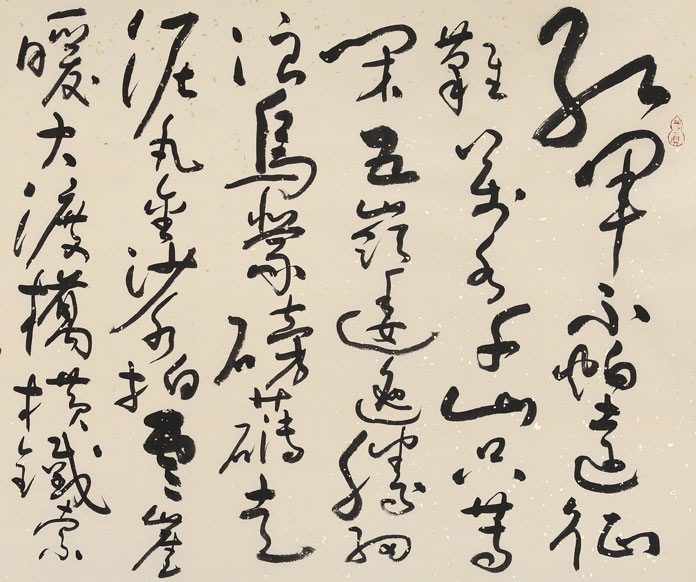 紅軍不怕遠征
難萬水千山只等
閑五嶺逶迤騰細
浪烏蒙磅礴走
泥丸金沙水拍雲崖
暖大渡橋橫鐵索